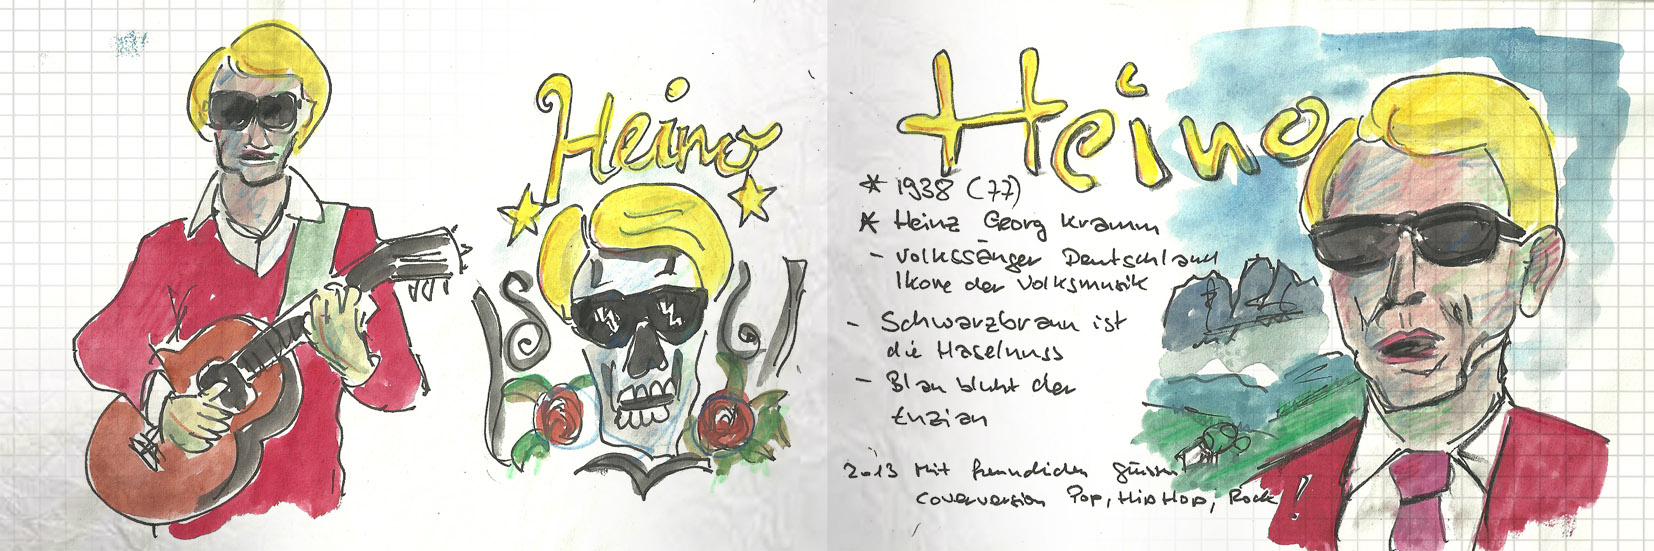 Heino
Heino
* 1938 (77)
* Heinz Georg Kramm
- Volkssänger Deutschland
Ikone der Volksmusik
- Schwarzbraun ist
die Haselnuss
- Blau blüht der
Enzian
2013 Mit freundlichen Grüssen
Coverversion Pop, HipHop, Rock!